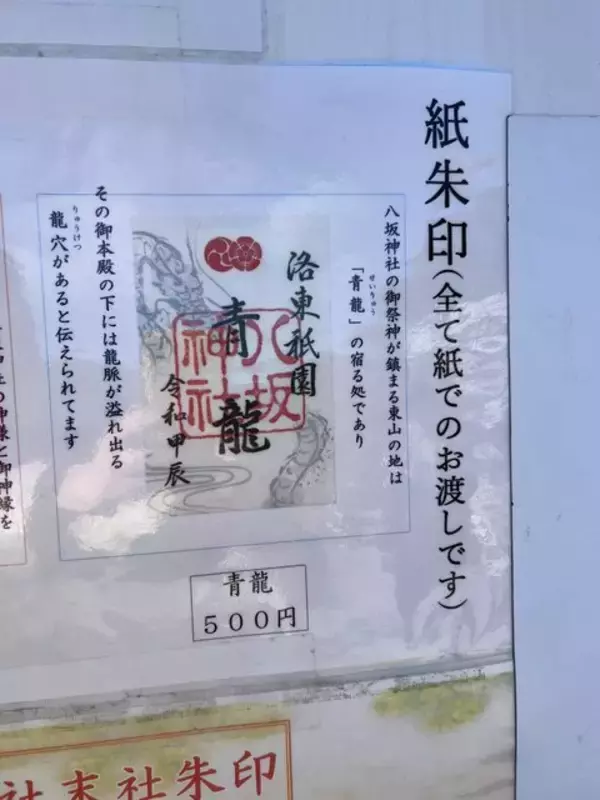 紙朱印(全て紙でのお渡しです)
八坂神社の御祭神が鎮まる東山の地は
せいりゅう
「青龍」の宿る処であり
洛東祇園
青龍
八坂神社
令和甲辰
その御本殿の下には龍脈が溢れ出る
りゅうけつ
龍穴があると伝えられてます
の神様と御神縁を
青龍
500円
社末社朱印